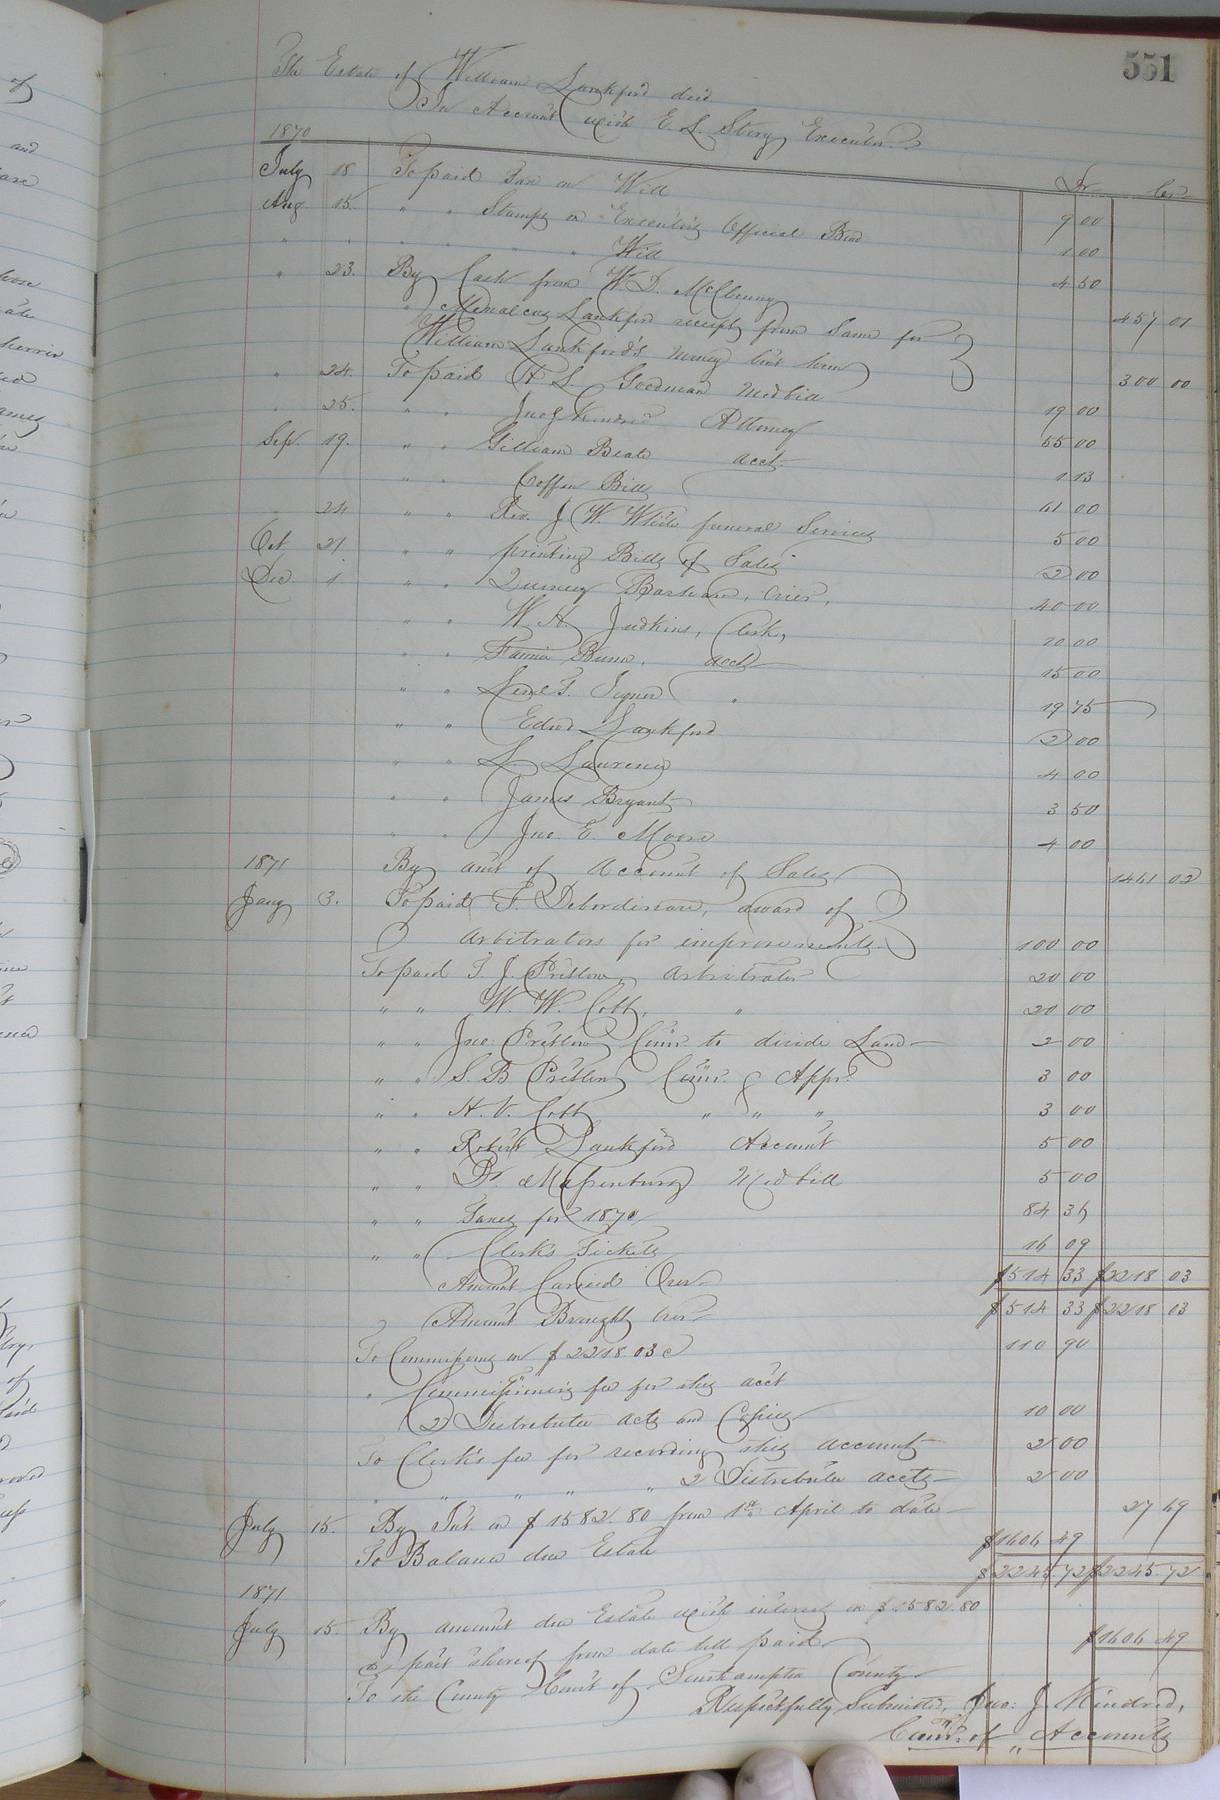 551
The Estate of William Lankford decd
In Account with E. L. Story, Executor
1870
Dr Cr
July 18 To paid Tax on Will 9 00
Aug 15. " " Stamps on Executor's Official Bond 1 00
" " " " " " Will 4 50
" 23. By Cash from W. D. McClenny 457 01
" Lankford receipt from Same for
William Lankford's money lent him 300 00
" 24. To paid R L Goodman Med bill 19 00
" 25. " " Jno J Kindred Attorney 55 00
Sep. 19. " " Gilliam Beale acct 1 13
" " Coffin Bill 61 00
24 " " Rev. J. W. White funeral Services 5 00
Oct 21 " " printing Bills of Sales 2 00
Dec 1 " " Barham, Crier, 40 00
" " W. H. Judkins, Clerk,
" " Bunn, acct 15 00
" " " 19 75
" " Edwd Lankford 2 00
" " L. Laurence 4 00
" " James Bryant 3 50
" " Jno. E. Moore 4 00
1871 By amt of Account of Sales 1461 02
Jany 3. To paid award of
Arbitrators for improvements 100 00
To paid T. J. Pretlow, Arbitrator 20 00
" " W. W. Cobb, " 20 00
" " Jno. Pretlow Comr to divide Land 2 00
" " S. B Pretlow Comr. & Appr. 3 00
" " H. V. Cobb " " " 3 00
" " Robert Lankford Account 5 00
" " Dr Massenburg Med bill 5 00
" " Taxes for 1870 84 36
" " Clerk's Tickets 16 09
Amount Carried Over $514 33 $2218 03
" Amount Brought Over $514 33 $2218 03
To Commissions on $2218 03 c 110 90
" Commissioner's fee for this acct
(2) Distributee accts and Copies 10 00
To Clerk's fee for recording this account 2 00
" " " " " 2 Distributee accts 2 00
July 15. By Int on $1582 80 from 1st April to date 27 69
To Balance due Estate $1606 49
$2245 72 $2245 72
1871
July 15. By amount due Estate with interest on $1582.80
or part thereof from date till paid $1606 49
To the County Court of Southampton County
Respectfully Submitted, Jno: J. Kindred,
Comr. of Accounts